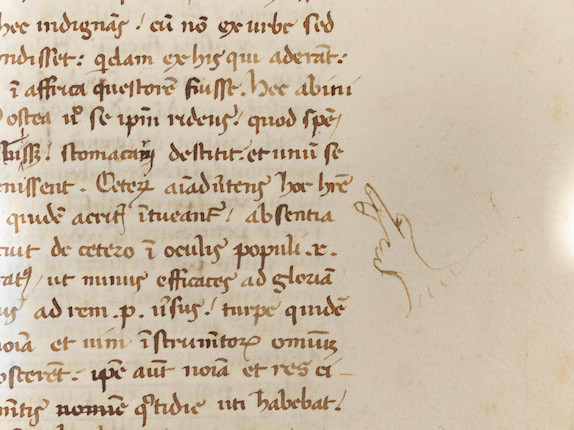 hec indignãs / cũ nõ ex urbe sed
ndisset : q̃dam ex his qui aderãt :
ĩ affrica questorẽ fuisse . Hec ab ini
ostea ũº se ip̃m ridens / quod spẽ /
stomacaỹ destitit . et unũ se
enissent . Ceterꝝ aĩadũtens hoc hr̃e
quidẽ acrit᷑ ĩtueant᷑ / absentia
cuit de cetero ĩ oculis populi . r .
ratꝯ / ut minus efficaces ad gloriã
us ad rem . p . ũsus / turpe quidẽ
noĩa et uim ĩstrum̃torꝝ omniũ
oscerent : ip̃e aũt noĩa et res ci
m̃tis nomine q̃tidie uti habebat /